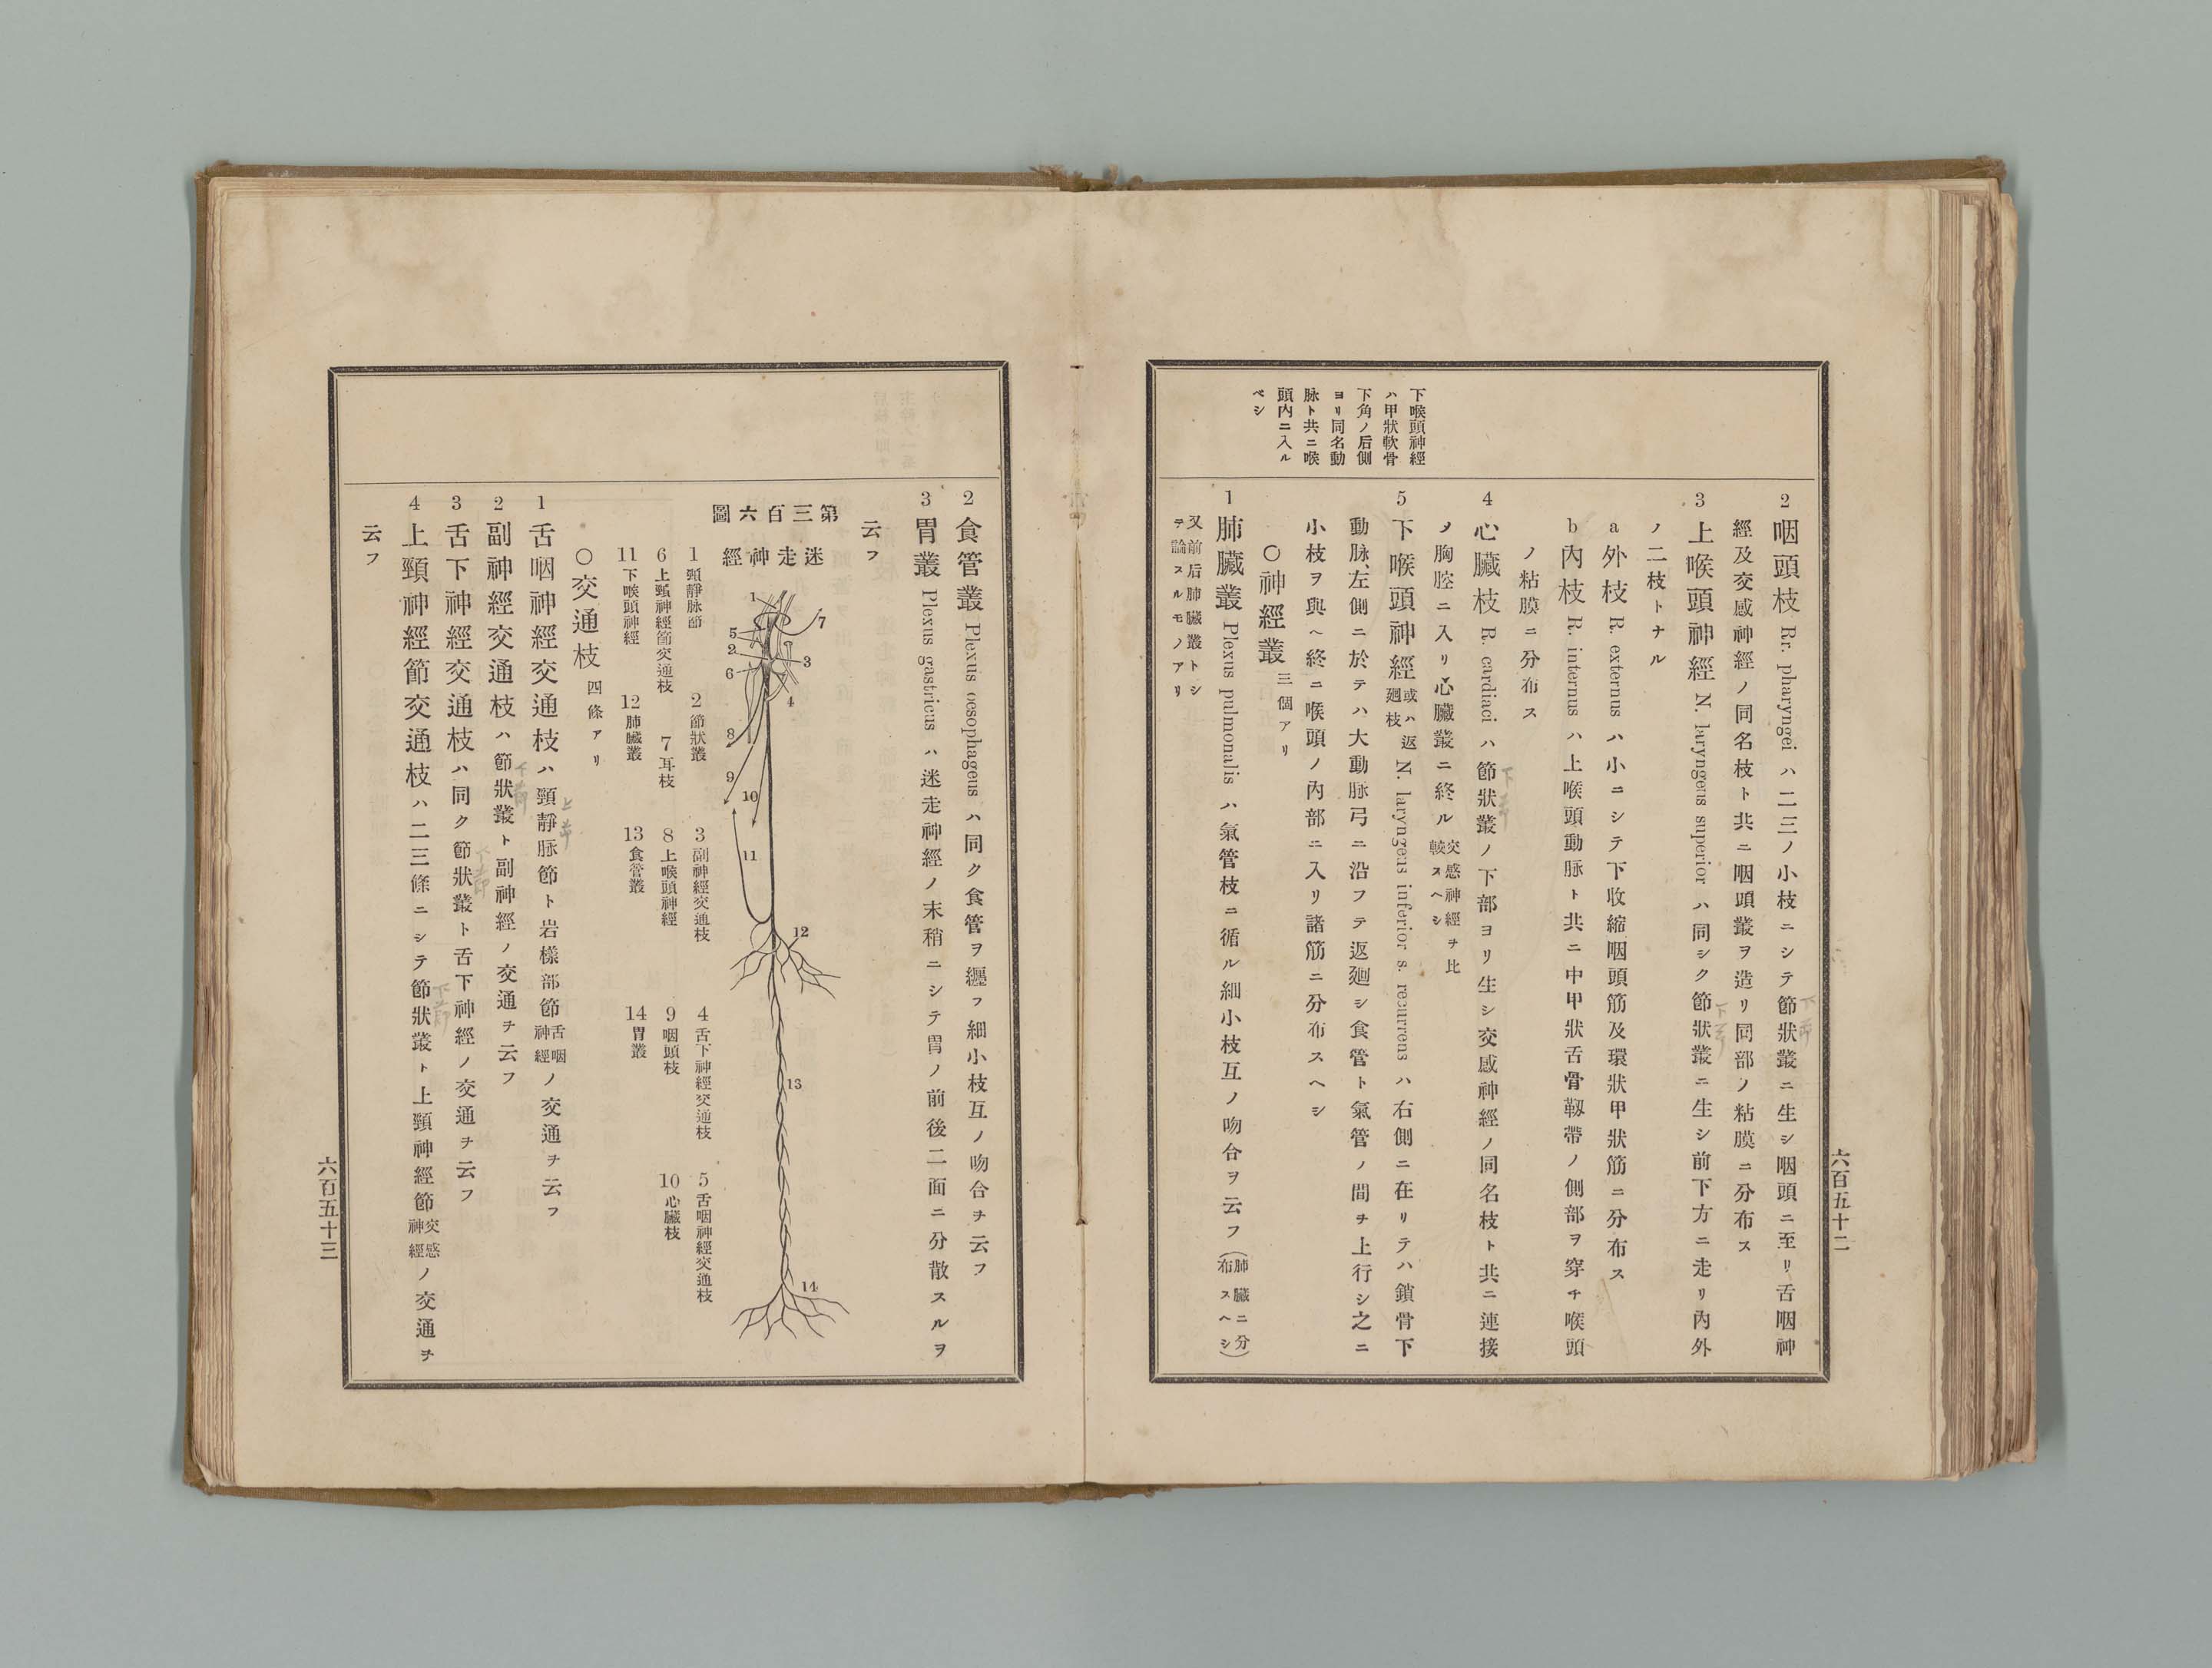 下喉頭神經
ハ甲狀軟骨
下角ノ后側
ヨリ同名動
脉ト共ニ喉
頭內ニ入ル
ベシ
2 咽頭枝 Rr. pharyngei ハ二三ノ小枝ニシテ節狀叢ニ生シ咽頭ニ至リ舌咽神
經及交感神經ノ同名枝ト共ニ咽頭叢ヲ造リ同部ノ粘膜ニ分布ス
3 上喉頭神經 N. laryngeus superior ハ同シク節狀叢ニ生シ前下方ニ走リ內外
ノ二枝トナル
a 外枝 R. externus ハ小ニシテ下收縮咽頭筋及環狀甲狀筋ニ分布ス
b 內枝 R. internus ハ上喉頭動脈ト共ニ中甲狀舌骨靱帶ノ側部ヲ穿チ喉頭
ノ粘膜ニ分布ス
4 心臟枝 R. cardiaci ハ節狀叢ノ下部ヨリ生シ交感神經ノ同名枝ト共ニ連接
メ胸腔ニ入リ心臟叢ニ終ル 交感神經ヲ比較スヘシ
5 下喉頭神經 或ハ返廻枝 N. laryngeus inferior s. recurrens ハ右側ニ在リテハ鎖骨下
動脈、左側ニ於テハ大動脈弓ニ沿フテ返廻シ食管ト氣管ノ間ヲ上行シ之ニ
小枝ヲ與ヘ終ニ喉頭ノ內部ニ入リ諸筋ニ分布スヘシ
〇神經叢 三個アリ
1 肺臟叢 Plexus pulmonalis ハ氣管枝ニ循ル細小枝互ノ吻合ヲ云フ (肺臟ニ分布スヘシ)
又前后肺臟叢トシ
テ論スルモノアリ
六百五十二
2 食管叢 Plexus oesophageus ハ同ク食管ヲ纒フ細小枝互ノ吻合ヲ云フ
3 胃叢 Plexus gastricus ハ迷走神經ノ末稍ニシテ胃ノ前後二面ニ分散スルヲ
云フ
第三百六圖
迷走神經
1
7
5
2
3
6
4
8
9
10
11
12
13
14
1 頸靜脉節 2 節狀叢 3 副神經交通枝 4 舌下神經交通枝 5 舌咽神經交通枝
6 上頸神經節交通枝 7 耳枝 8 上喉頭神經 9 咽頭枝 10 心臟枝
11 下喉頭神經 12 肺臟叢 13 食管叢 14 胃叢
〇交通枝 四條アリ
1 舌咽神經交通枝ハ頸靜脈節ト岩樣部節 舌咽神經 ノ交通ヲ云フ
2 副神經交通枝ハ節狀叢ト副神經ノ交通ヲ云フ
3 舌下神經交通枝ハ同ク節狀叢ト舌下神經ノ交通ヲ云フ
4 上頸神經節交通枝ハ二三條ニシテ節狀叢ト上頸神經節 交感神經 ノ交通ヲ
云フ
六百五十三